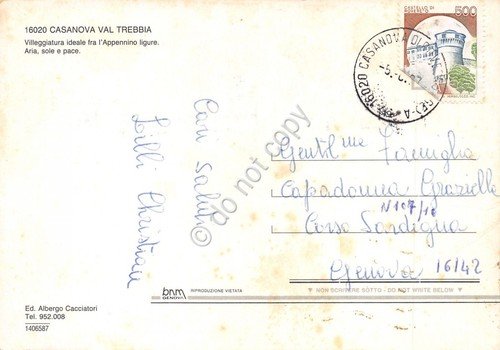 16020 CASANOVA VAL TREBBIA
Villeggiatura ideale fra l'Appennino ligure.
Aria, sole e pace.
500
16020 CASANOVA
Cari Saluti
Lilli Christian
© do not copy
Gentil.me Famiglia
Capadonna Grazielle
N 107/10
Corso Sardegna
Genova 16142
bnm
GENOVA
RIPRODUZIONE VIETATA
NON SCRIVERE SOTTO - DO NOT WRITE BELOW
Ed. Albergo Cacciatori
Tel. 952.008
1406587